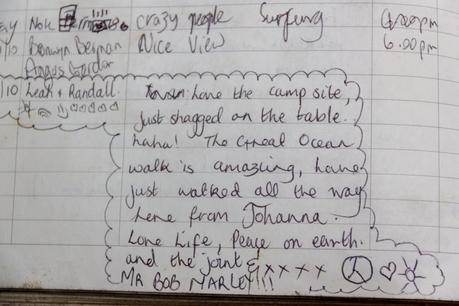 crazy people Surfing
/10 Bronwyn Bernan Nice View 6.00pm
Angus Gordon
/10 Leah + Randall.
love the camp site,
just shagged on the table.
haha! The Great Ocean
walk is amazing, have
just walked all the way
here from Johanna.
Love Life, Peace on earth.
and the joint &
MR BOB MARLEY!!! xxxx